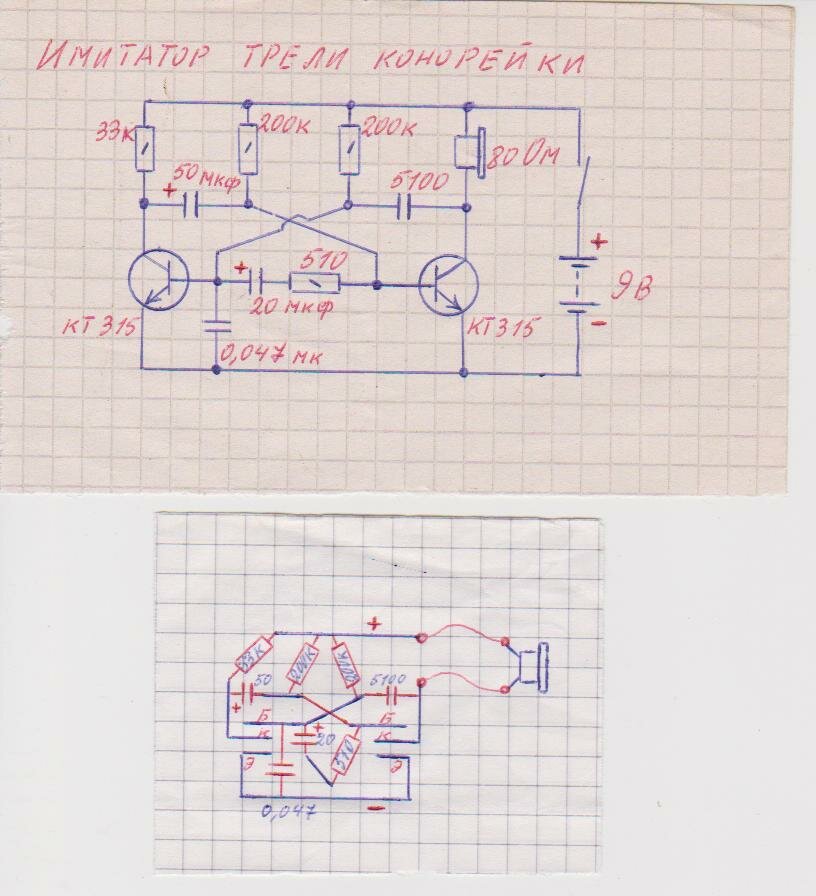 ИМИТАТОР ТРЕЛИ КОНОРЕЙКИ
33к 200к 200к 80 Ом
+ 50 мкф 5100
+ 510 + 9В
20 мкф
КТ 315 КТ315 -
0,047 мк
+
33к 200к 200к
50 5100
+ Б + Б
К 20 К
Э 510 Э
0,047 -